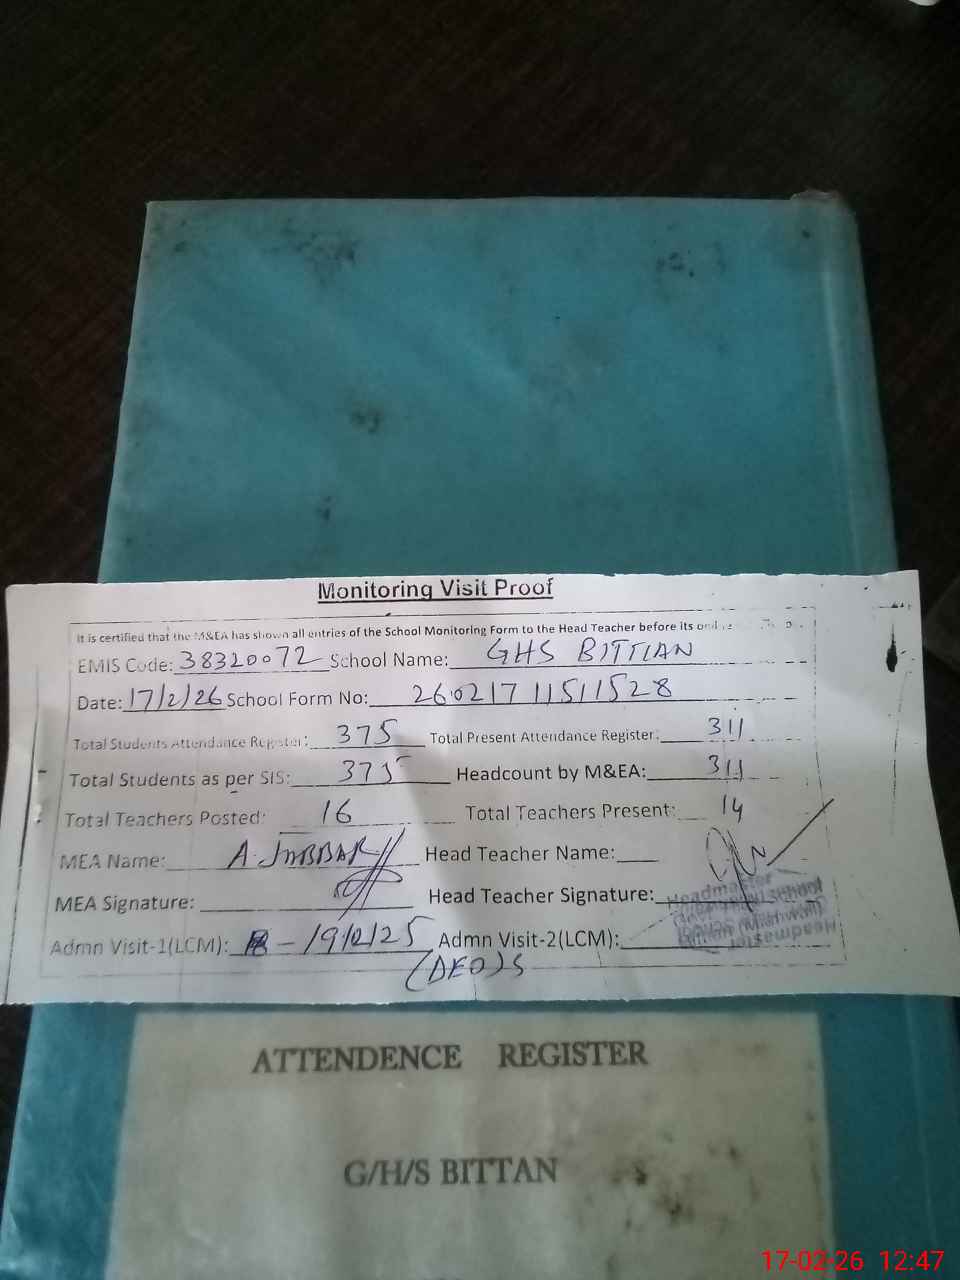 Monitoring Visit Proof
It is certified that the M&EA has shown all entries of the School Monitoring Form to the Head Teacher before its
EMIS Code: 38320072 School Name: GHS BITTIAN
Date: 17/2/26 School Form No: 260217 11511528
Total Students Attendance Register: 375 Total Present Attendance Register: 311
Total Students as per SIS: 375 Headcount by M&EA: 311
Total Teachers Posted: 16 Total Teachers Present: 14
MEA Name: A. JABBAR Head Teacher Name:
MEA Signature: Head Teacher Signature:
Headmaster
School
Admn Visit-1(LCM): - 19/2/25 Admn Visit-2(LCM):
(DEO)S
ATTENDENCE REGISTER
G/H/S BITTAN
17-02-26 12:47